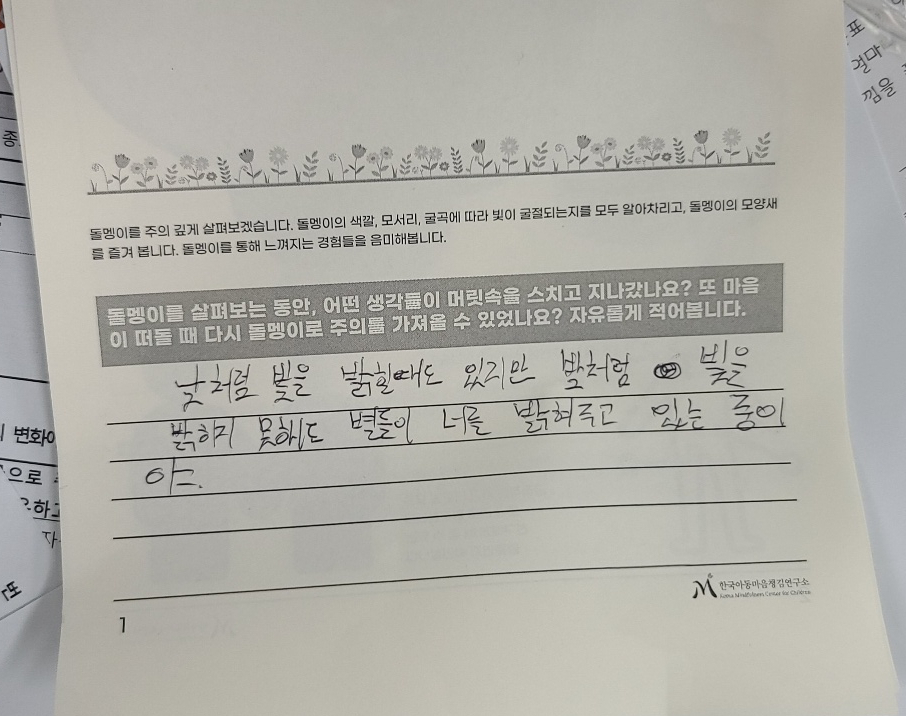 표
얼마
낌을
종
돌멩이를 주의 깊게 살펴보겠습니다. 돌멩이의 색깔, 모서리, 굴곡에 따라 빛이 굴절되는지를 모두 알아차리고, 돌멩이의 모양새
를 즐겨 봅니다. 돌멩이를 통해 느껴지는 경험들을 음미해봅니다.
돌멩이를 살펴보는 동안, 어떤 생각들이 머릿속을 스치고 지나갔나요? 또 마음
이 떠돌 때 다시 돌멩이로 주의를 가져올 수 있었나요? 자유롭게 적어봅니다.
낮처럼 빛을 밝힐때도 있지만 밤처럼 빛을
밝하지 못해도 별들이 너를 밝혀주고 있는 중이
야.
변화
으로
하고
한국아동마음챙김연구소
Korea Mindfulness Center for Children
1